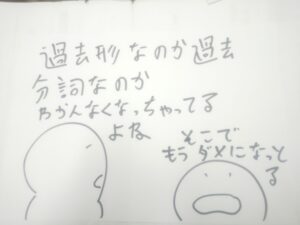 過去形なのか過去
分詞なのか
わかんなくなっちゃってる
よね
そこで
もうダメになっと
る